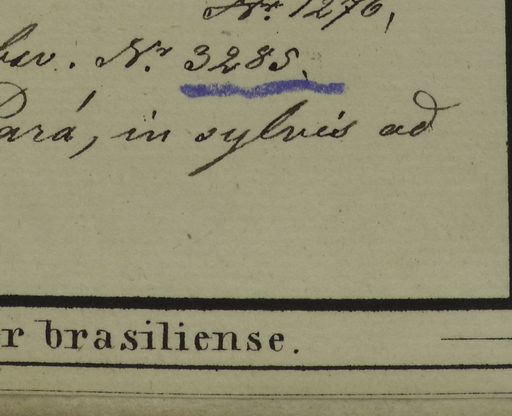 Nr. 1276,
bsv. Nr. 3285.
Pará, in sylvis ad
r brasiliense.